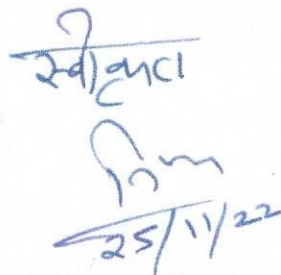 स्वीकृत
25/11/22